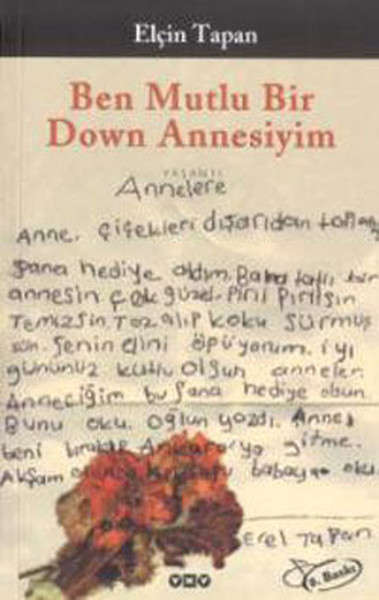 Elçin Tapan
Ben Mutlu Bir
Down Annesiyim
YAŞANTI
Annelere
Anne. Çiçekleri dışarıdan
Sana hediye aldım. Bana tatlı bir
annesin çok güzel. Piril pırılsın
Temizsin. Toz alıp koku sürmüş
sün. Senin elini öpüyorum. iyi
gününüz kutlu olsun anneler
Anneciğim bu sana hediye olsun
Bunu oku. Oğlun yazdı. Anne
beni bırakıp Ankara'ya gitme.
Akşam babaya oku
Erel Tapan
YKY
8. Baskı